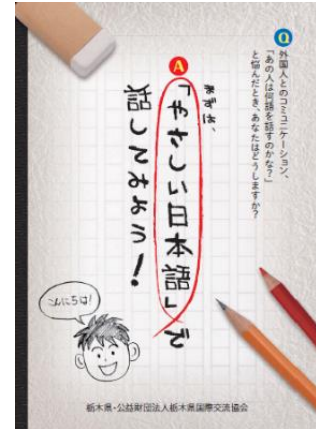 Q
外国人とのコミュニケーション、
「あの人は何語を話すのかな?」
と悩んだとき、あなたはどうしますか?
A
「やさしい日本語」で
話してみよう!
こんにちは!
栃木県・公益財団法人栃木県国際交流協会